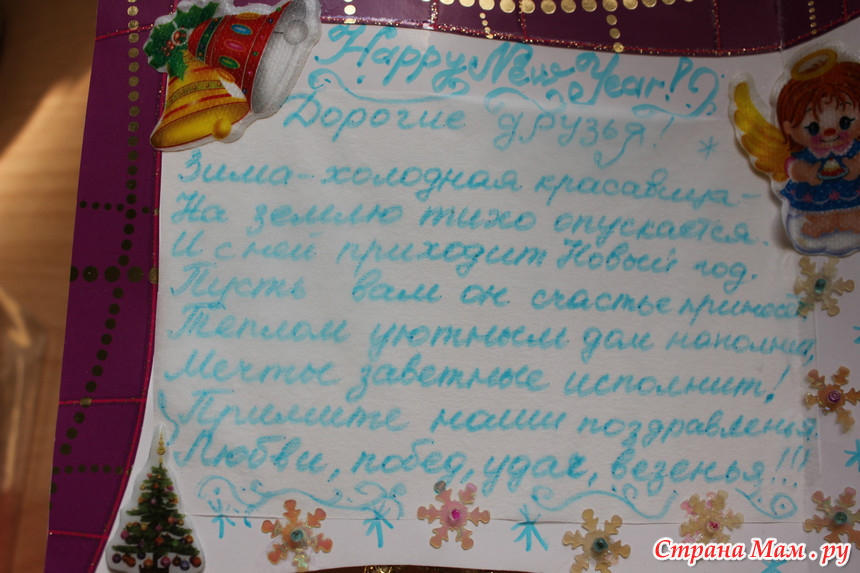 Happy New Year!
Дорогие друзья!
Зима-холодная красавица-
На землю тихо опускается.
И с ней приходит Новый год.
Пусть вам он счастье принесёт
Теплом уютным дом наполнит,
Мечты заветные исполнит!
Примите наши поздравления
Любви, побед, удач, везенья!!!
Страна Мам.ру